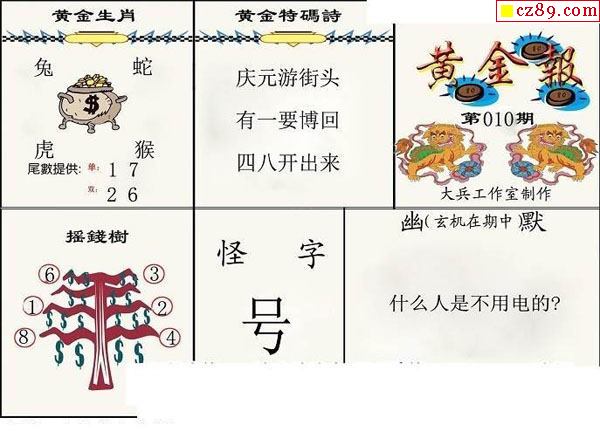 cz89.com
黄金生肖
兔 蛇
$
虎 猴
尾數提供: 单: 1 7
双: 2 6
黄金特碼詩
庆元游街头
有一要博回
四八开出来
黄金報
第010期
大兵工作室制作
摇錢樹
6 3
1 2
8 4
怪字
号
幽(玄机在期中)默
什么人是不用电的?